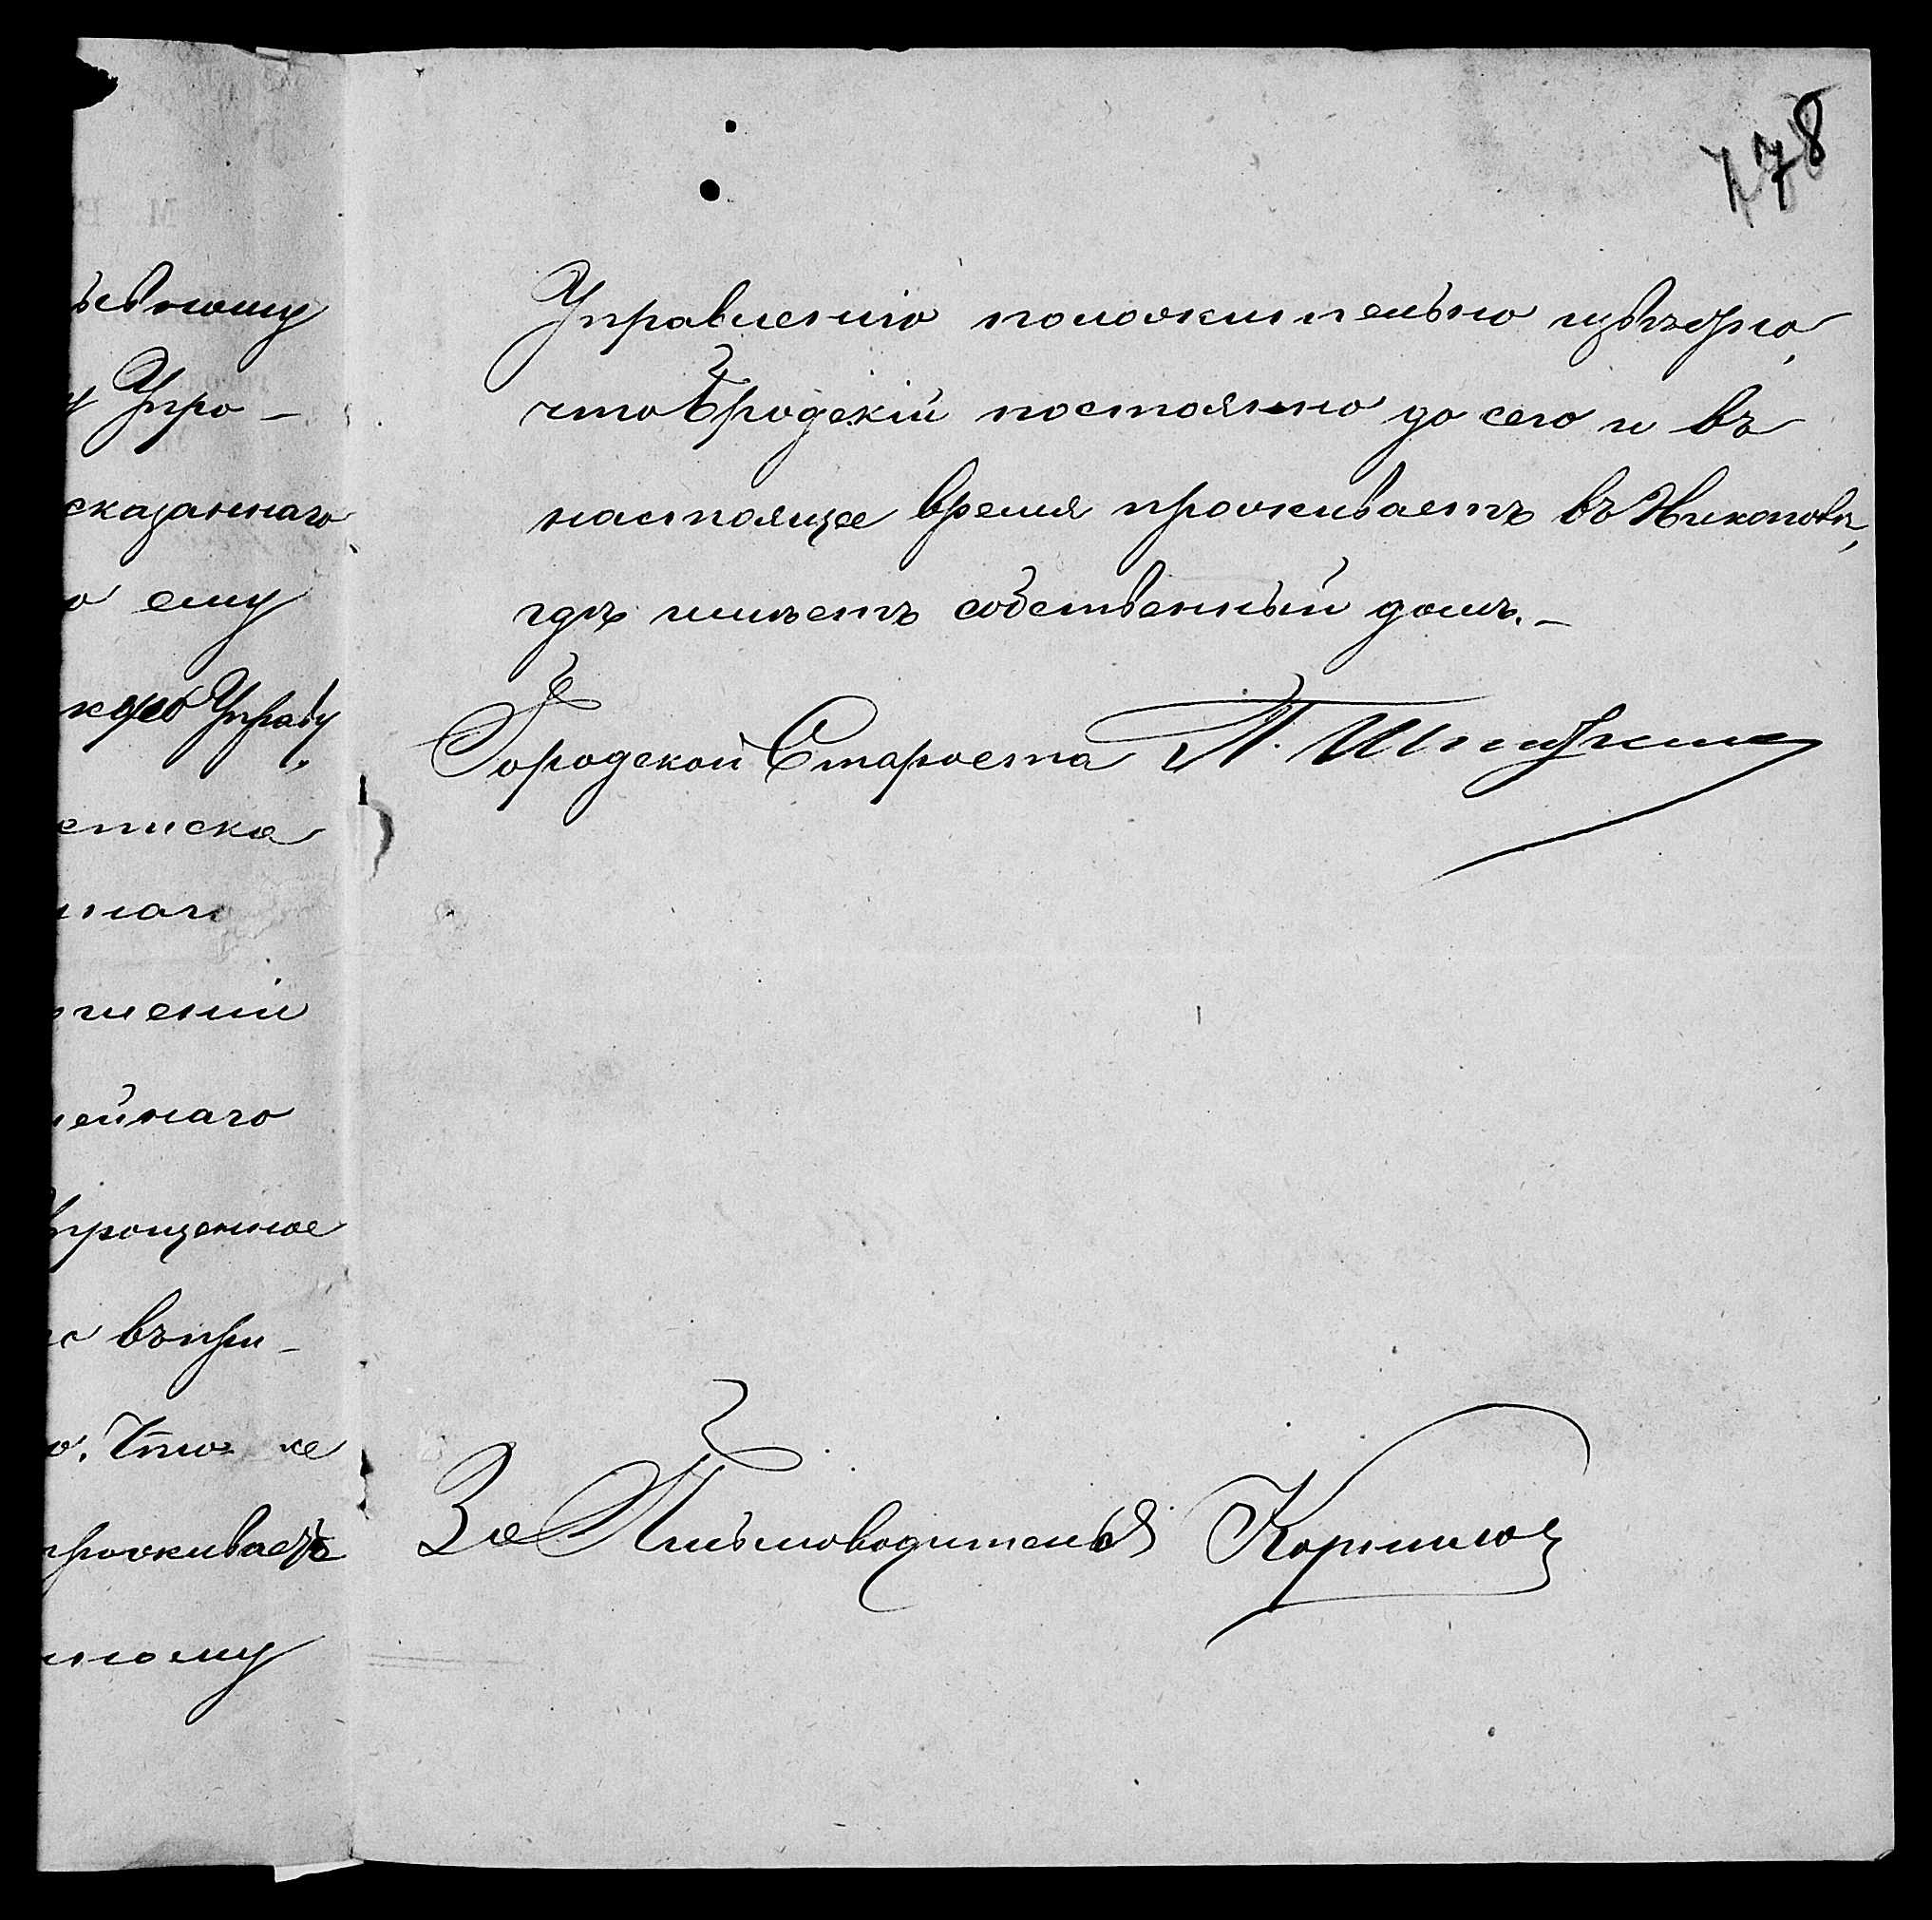 178
Управленію положительно извѣстно,
что Бродскій постоянно до сего и въ
настоящее время проживаетъ въ Никополѣ,
гдѣ имѣетъ собственный домъ.—
Городской Староста П.
За Письмоводителя Корнилов
ему
Упра-
сказаннаго
ему
Управу
наго
шеній
нейнаго
прощенное
въ при-
Что же
проживаетъ
ному